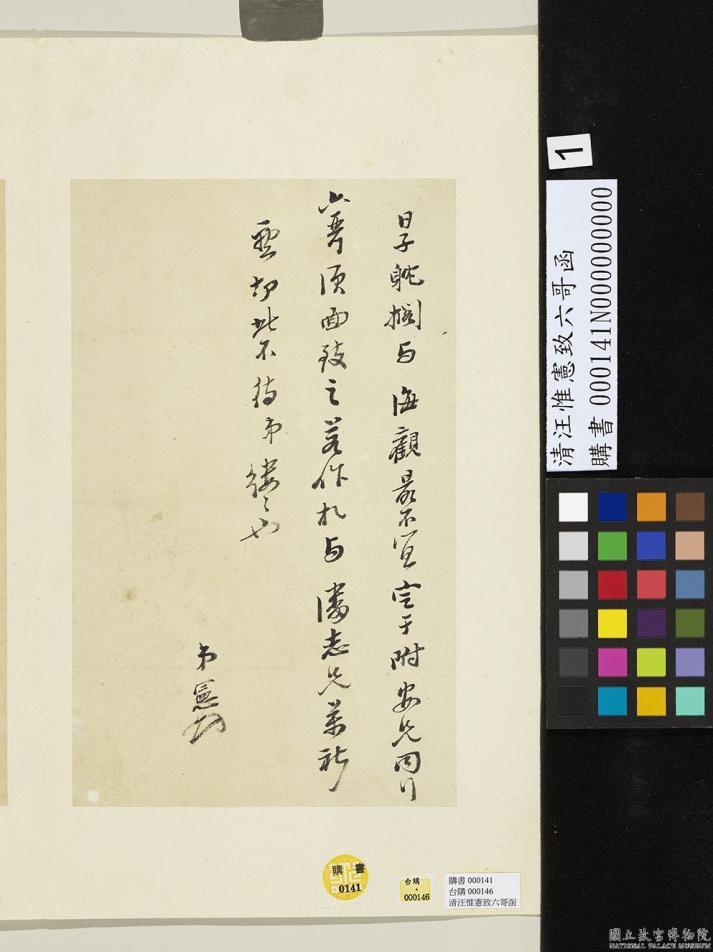 日子躭擱与海觀最不宜定于附安兄同行
六哥須面致之若作札与潘志兄萬祈
要却此不待弟縷〻也
弟憲頓
1
清汪惟憲致六哥函
購書 000141N000000000
購書
0141
台購
000146
購書 000141
台購 000146
清汪惟憲致六哥函
國立故宮博物院
NATIONAL PALACE MUSEUM